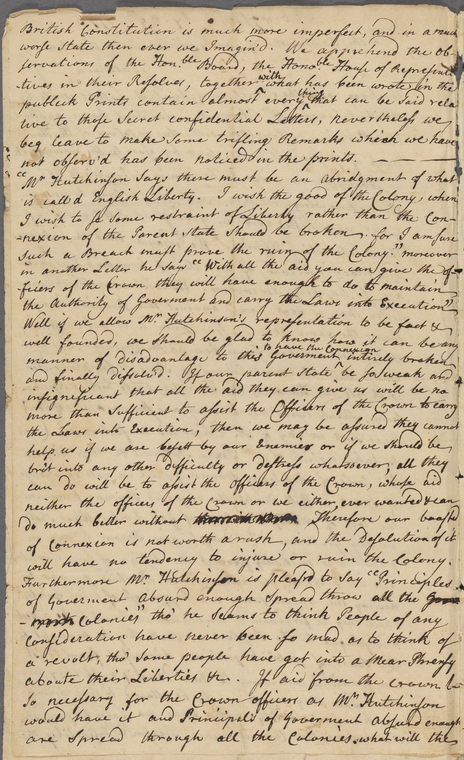 British Constitution is much more imperfect, and in a much
worse State then ever we Imagin'd. We apprehend the Ob-
servations of the Hon.ble Board, the Hona.ble House of Represent
-tives in their Resolves, together with what has been wrote in the
publick Prints contain almost every thing that can be said rela
tive to those Secret confidential Letters, nevertheless we
beg leave to make Some trifling Remarks which we have
not observ'd has been noticed in the prints.
"Mr. Hutchinson Says there must be an abridgment of what
is call'd English Liberty. I wish the good of the Colony, when
I wish to se some restraint of Liberty rather than the Con-
-nexion of the Parent State Should be broken, for I am sure
Such a Breach must prove the ruin of the Colony." moreover
in another Letter he Says "With all the aid you can give the of-
ficers of the Crown they will have enough to do to maintain
the Authority of Goverment and carry the Laws into Execution"
Well if we allow Mr. Hutchinson's representation to be fact &
well founded, we should be glad to know how it can be any
manner of disadvantage to this Goverment to have the Connexion intirely broken
and finally dissolv'd. If our parent State be so weak and
insignificant that all the aid they can give us will be no
more than Sufficient to assist the Officers of the Crown to carry
the Laws into Execution, then we may be assured they cannot
help us if we are besett by our Enemies or if we should be
bro't into any other difficulty or destress whatsoever, all they
can do will be to assist the officers of the Crown, whose aid
neither the officers of the Crown or we either, ever wanted & can
do much better without Therefore our boasted
of Connexion is not worth a rush, and the Desolution of it
will have no tendency to injure or ruin the Colony.
Furthermore Mr. Hutchinson is pleas'd to Say "Principles
of Goverment absurd enough Spread throu all the
Colonies" tho' he seams to think People of any
Consideration have never been so mad as to think of
a revolt, tho' Some people have got into a Mear Phrensy
aboute their Leberties &c. If aid from the Crown be
So necessary for the Crown officers as Mr. Hutchinson
would have it and Principels of Goverment absurd enough
are Spread through all the Colonies what will the